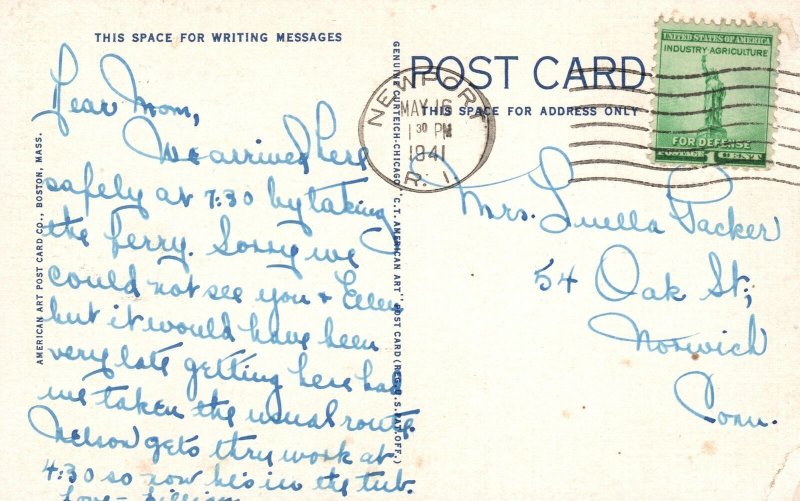 THIS SPACE FOR WRITING MESSAGES
Dear Mom,
We arrived here
safely at 7:30 by taking
the ferry. Sorry we
could not see you + Ellen
but it would have been
very late getting here had
we taken the usual route.
Nelson gets thry work at
4:30 so now he's in the tub.
Love - Lillian
AMERICAN ART POST CARD CO., BOSTON, MASS.
GENUINE CURTEICH-CHICAGO "C.T. AMERICAN ART" POST CARD (REG. U.S. PAT. OFF.)
POST CARD
THIS SPACE FOR ADDRESS ONLY
NEWPORT
MAY 16
1 30 PM
1941
R. I.
UNITED STATES OF AMERICA
INDUSTRY AGRICULTURE
FOR DEFENSE
POSTAGE 1 CENT
Mrs. Luella Packer
54 Oak St;
Norwich
Conn.